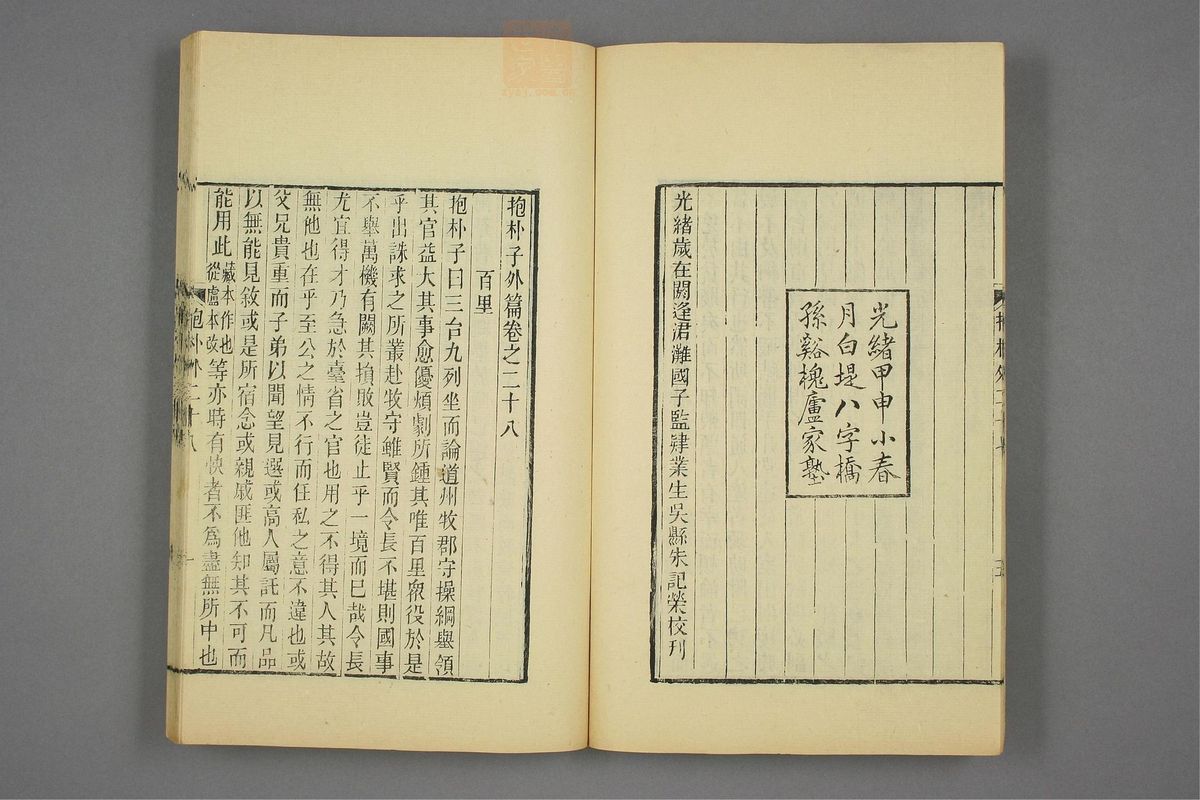 光緒甲申小春
月白堤八字橋
孫谿槐廬家塾
光緒歲在閼逢涒灘國子監肄業生吳縣朱記榮校刊
抱朴子外篇卷之二十八
百里
抱朴子曰三台九列坐而論道州牧郡守操綱舉領
其官益大其事愈優煩劇所鍾其唯百里衆役於是
乎出誅求之所叢赴牧守雖賢而令長不堪則國事
不舉萬機有闕其損敗豈徒止乎一境而已哉令長
尤宜得才乃急於臺省之官也用之不得其人其故
無他也在乎至公之情不行而任私之意不違也或
父兄貴重而子弟以聞望見選或高人屬託而凡品
以無能見敘或是所宿念或親戚匪他知其不可而
能用此藏本作也從盧本改等亦時有快者不爲盡無所中也
抱朴外二十八